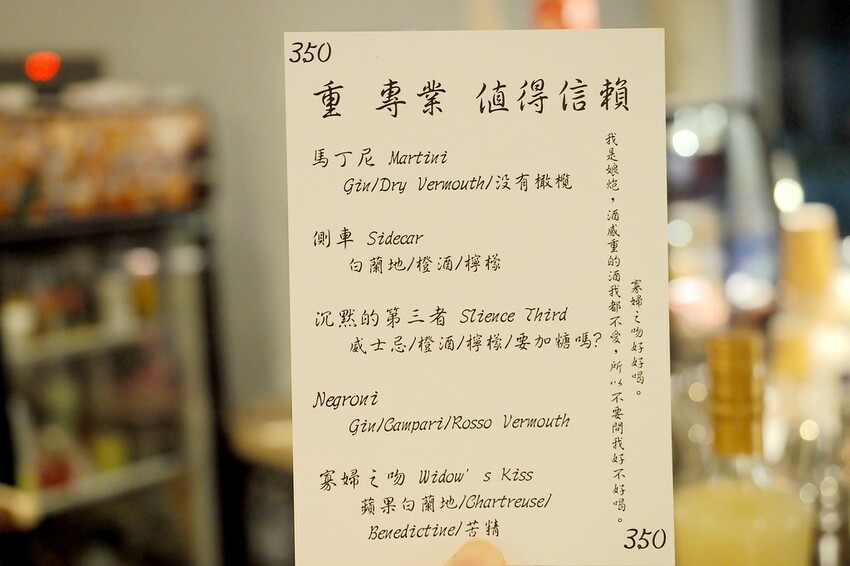 350
重 專業 值得信賴
馬丁尼 Martini
Gin/Dry Vermouth/沒有橄欖
側車 Sidecar
白蘭地/橙酒/檸檬
沉默的第三者 Slience Third
威士忌/橙酒/檸檬/要加糖嗎?
Negroni
Gin/Campari/Rosso Vermouth
寡婦之吻 Widow's Kiss
蘋果白蘭地/Chartreuse/
Benedictine/苦精
寡婦之吻好好喝。
我是娘炮，酒感重的酒我都不愛，所以不要問我好不好喝。
350